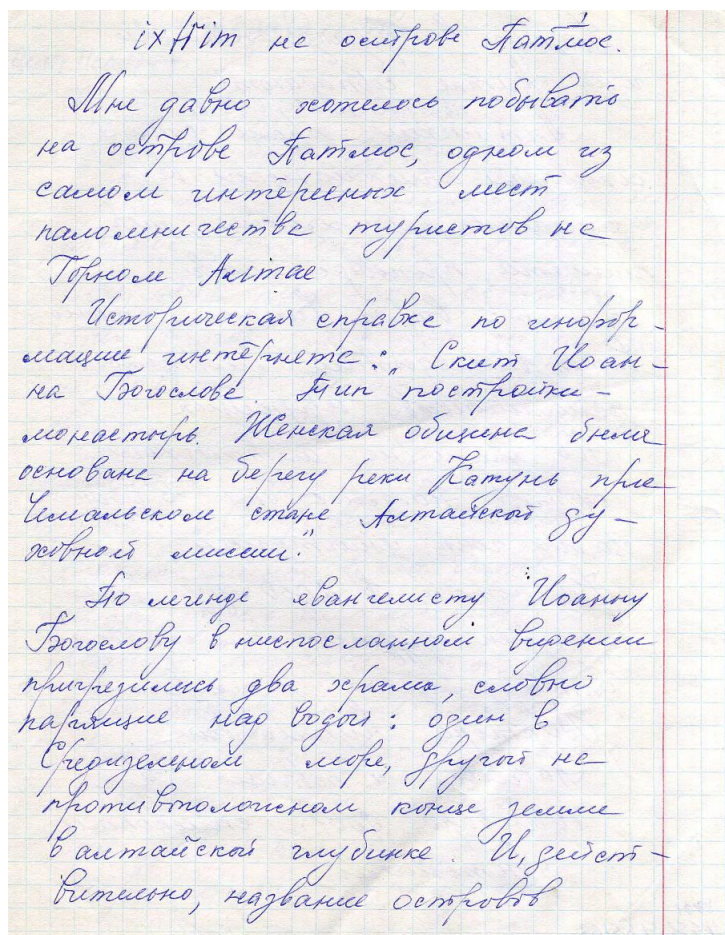 ixtrim на острове Патмос.
Мне давно хотелось побывать
на острове Патмос, одном из
самом интересных мест
паломничества туристов на
Горном Алтае
Историческая справка по инфор-
мации интернета: „Скит Иоан-
на Богослова. Тип постройки -
монастырь. Женская община была
основана на берегу реки Катунь при
Чемальском стане Алтайской ду-
ховной миссии."
По легенде евангелисту Иоанну
Богослову в ниспосланном видении
пригрезились два храма, словно
парящие над водой: один в
Средиземном море, другой на
противоположном конце земли
в алтайской глубинке. И, дейст-
вительно, название островов